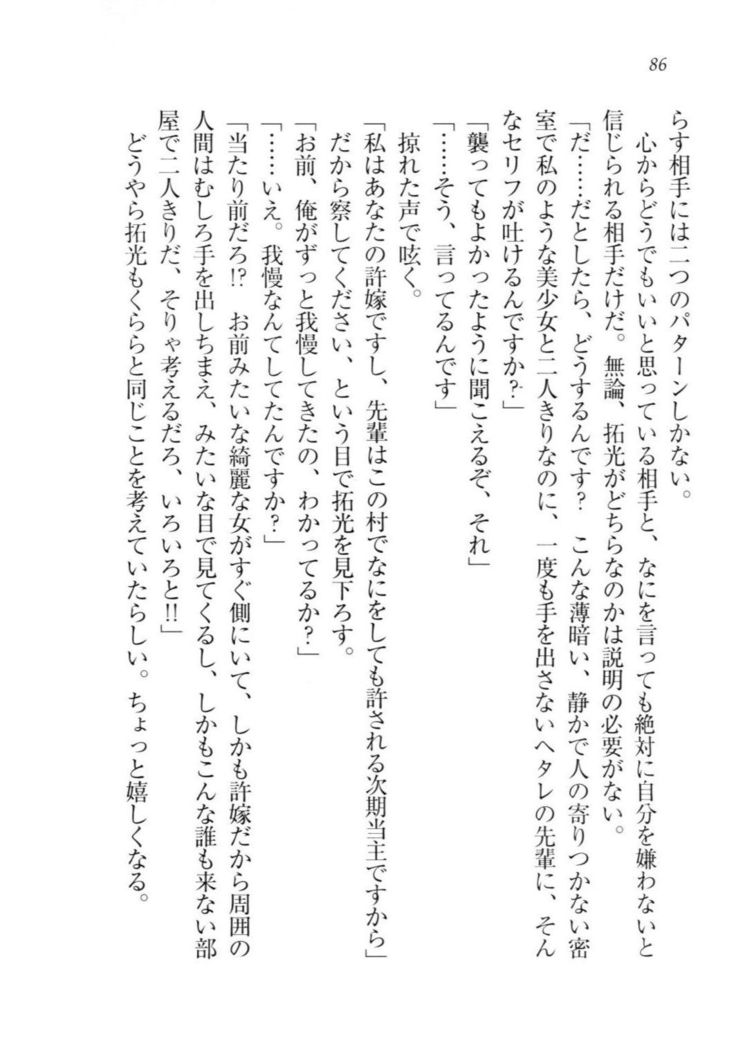 86
らす相手には二つのパターンしかない。
心からどうでもいいと思っている相手と、なにを言っても絶対に自分を嫌わないと
信じられる相手だけだ。無論、拓光がどちらなのかは説明の必要がない。
「だ……だとしたら、どうするんです？　こんな薄暗い、静かで人の寄りつかない密
室で私のような美少女と二人きりなのに、一度も手を出さないヘタレの先輩に、そん
なセリフが吐けるんですか？」
「襲ってもよかったように聞こえるぞ、それ」
「……そう、言ってるんです」
掠れた声で呟く。
「私はあなたの許嫁ですし、先輩はこの村でなにをしても許される次期当主ですから」
だから察してください、という目で拓光を見下ろす。
「お前、俺がずっと我慢してきたの、わかってるか？」
「……いえ。我慢なんてしてたんですか？」
「当たり前だろ!?　お前みたいな綺麗な女がすぐ側にいて、しかも許嫁だから周囲の
人間はむしろ手を出しちまえ、みたいな目で見てくるし、しかもこんな誰も来ない部
屋で二人きりだ、そりゃ考えるだろ、いろいろと!!」
どうやら拓光もくららと同じことを考えていたらしい。ちょっと嬉しくなる。